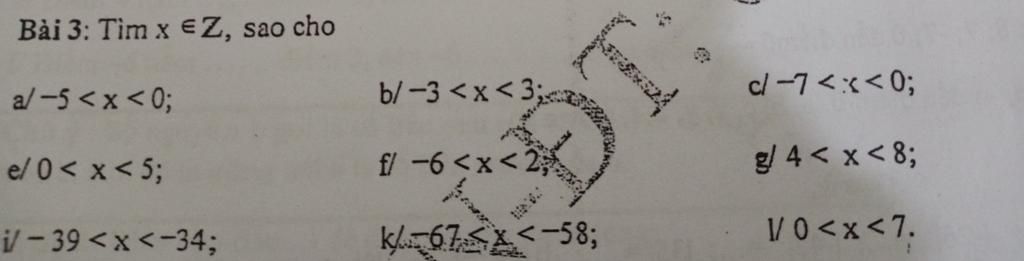 Bài 3: Tìm x ∈ Z, sao cho
a/ −5 < x < 0; b/ −3 < x < 3; c/ −7 < x < 0;
e/ 0 < x < 5; f/ −6 < x < 2; g/ 4 < x < 8;
i/ − 39 < x < −34; k/ −67 < x < −58; l/ 0 < x < 7.